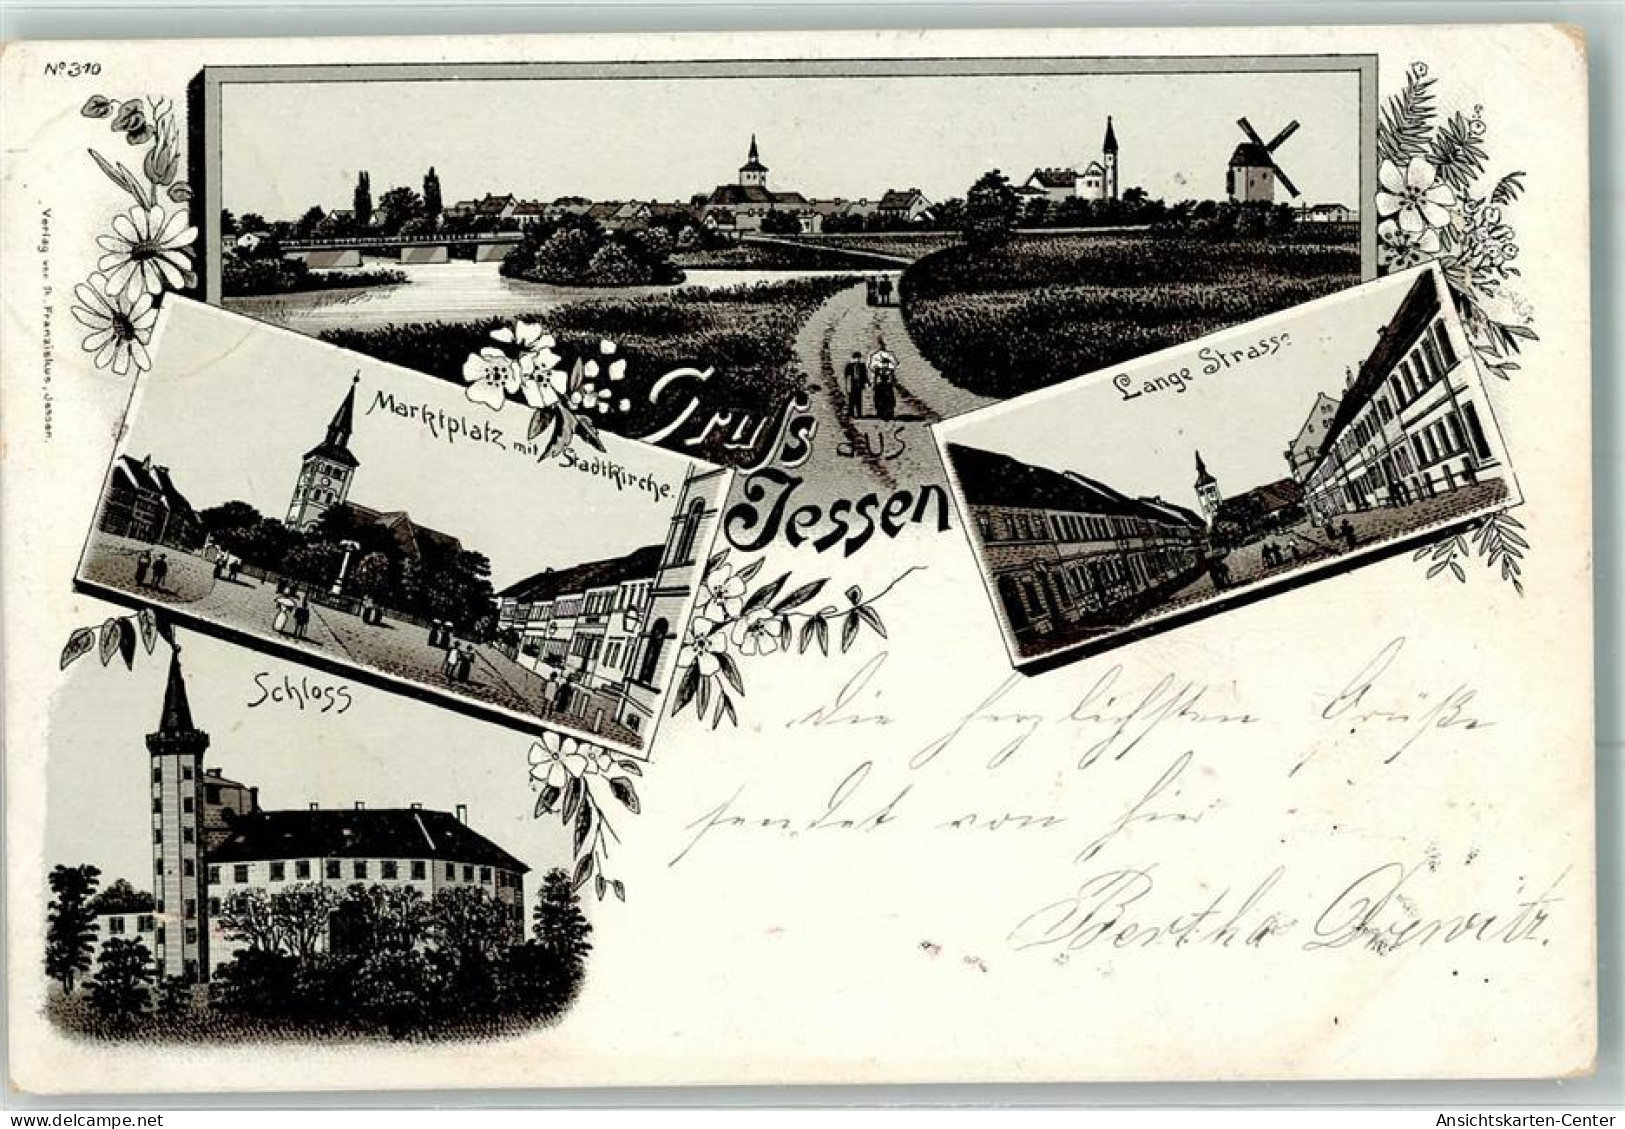 No 310
Verlag von R. Franziskus, Jessen.
Gruß
aus
Jessen
Marktplatz mit Stadtkirche.
Lange Strasse
Schloss
Die herzlichsten Grüße
sendet von hier
Bertha Drewitz.
Ansichtskarten-Center